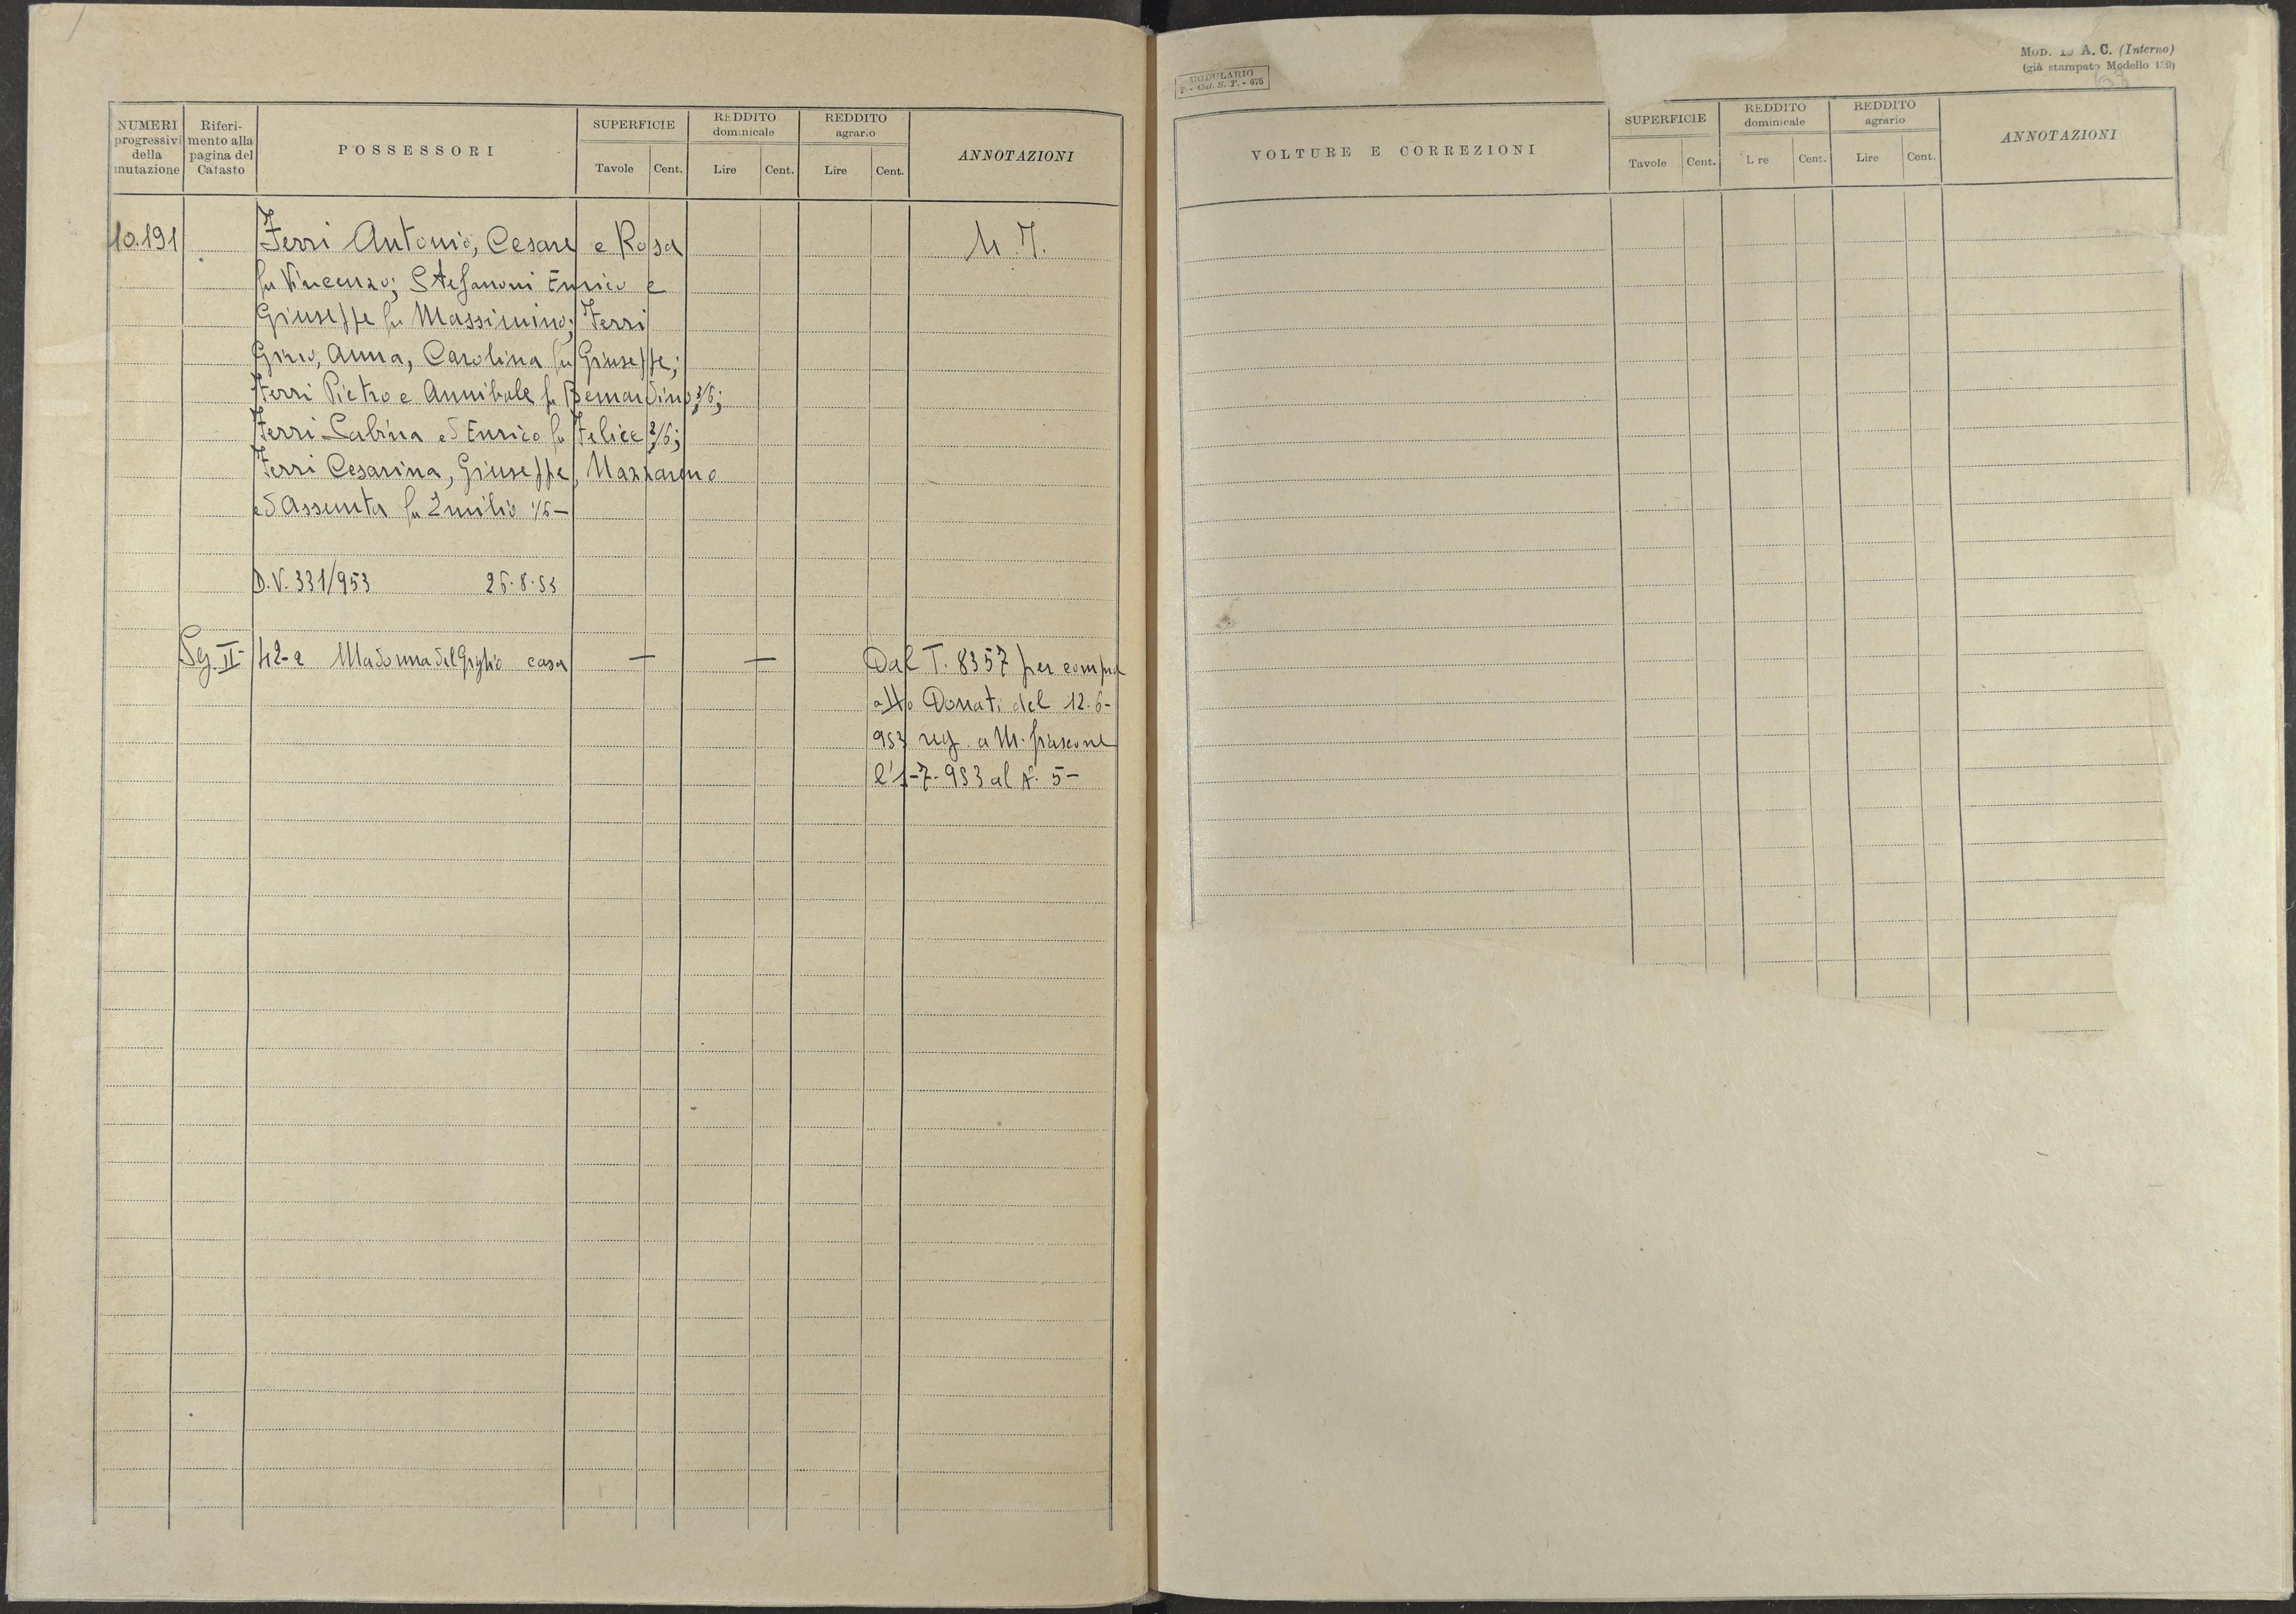 NUMERI progressivi della mutazione
Riferimento alla pagina del Catasto
POSSESSORI
SUPERFICIE
Tavole Cent.
REDDITO dominicale
Lire Cent.
REDDITO agrario
Lire Cent.
ANNOTAZIONI
10.191 Ferri Antonio, Cesare e Rosa
fu Vincenzo; Stefanoni Enrico e
Giuseppe fu Massimino; Ferri
Gino, Anna, Carolina fu Giuseppe;
Ferri Pietro e Annibale fu Bernardino 3/6;
Ferri Sabina ed Enrico fu Felice 2/6;
Ferri Cesarina, Giuseppe, Nazzareno
ed Assunta fu Emilio 1/6-
D.V. 331/953 26.8.53
Sez. II 42-2 Madonna del Giglio casa — —
Dal T. 8357 per compra
atto Donati del 12-6-
953 reg. a M. fiascone
l'1-7-953 al N. 5-
MODULARIO
F - Cat. S. T. - 675
A. C. (Interno)
(già stampato Modello
VOLTURE E CORREZIONI
SUPERFICIE
Tavole Cent.
REDDITO dominicale
L re Cent.
REDDITO agrario
Lire Cent.
ANNOTAZIONI